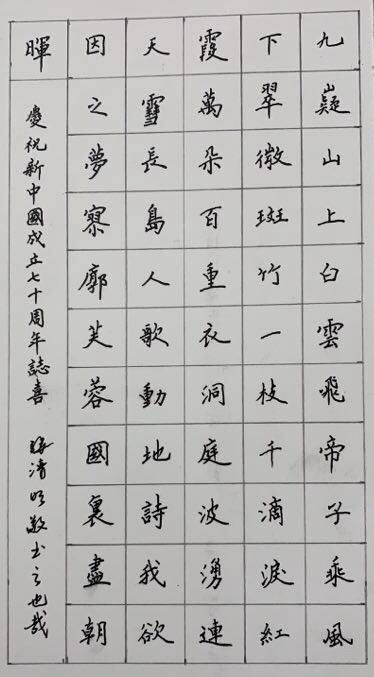 九嶷山上白雲飛帝子乘風
下翠微斑竹一枝千滴淚紅
霞萬朵百重衣洞庭波湧連
天雪長島人歌動地詩我欲
因之夢寥廓芙蓉國裏盡朝
暉
慶祝新中國成立七十周年誌喜
清明敬书之也哉